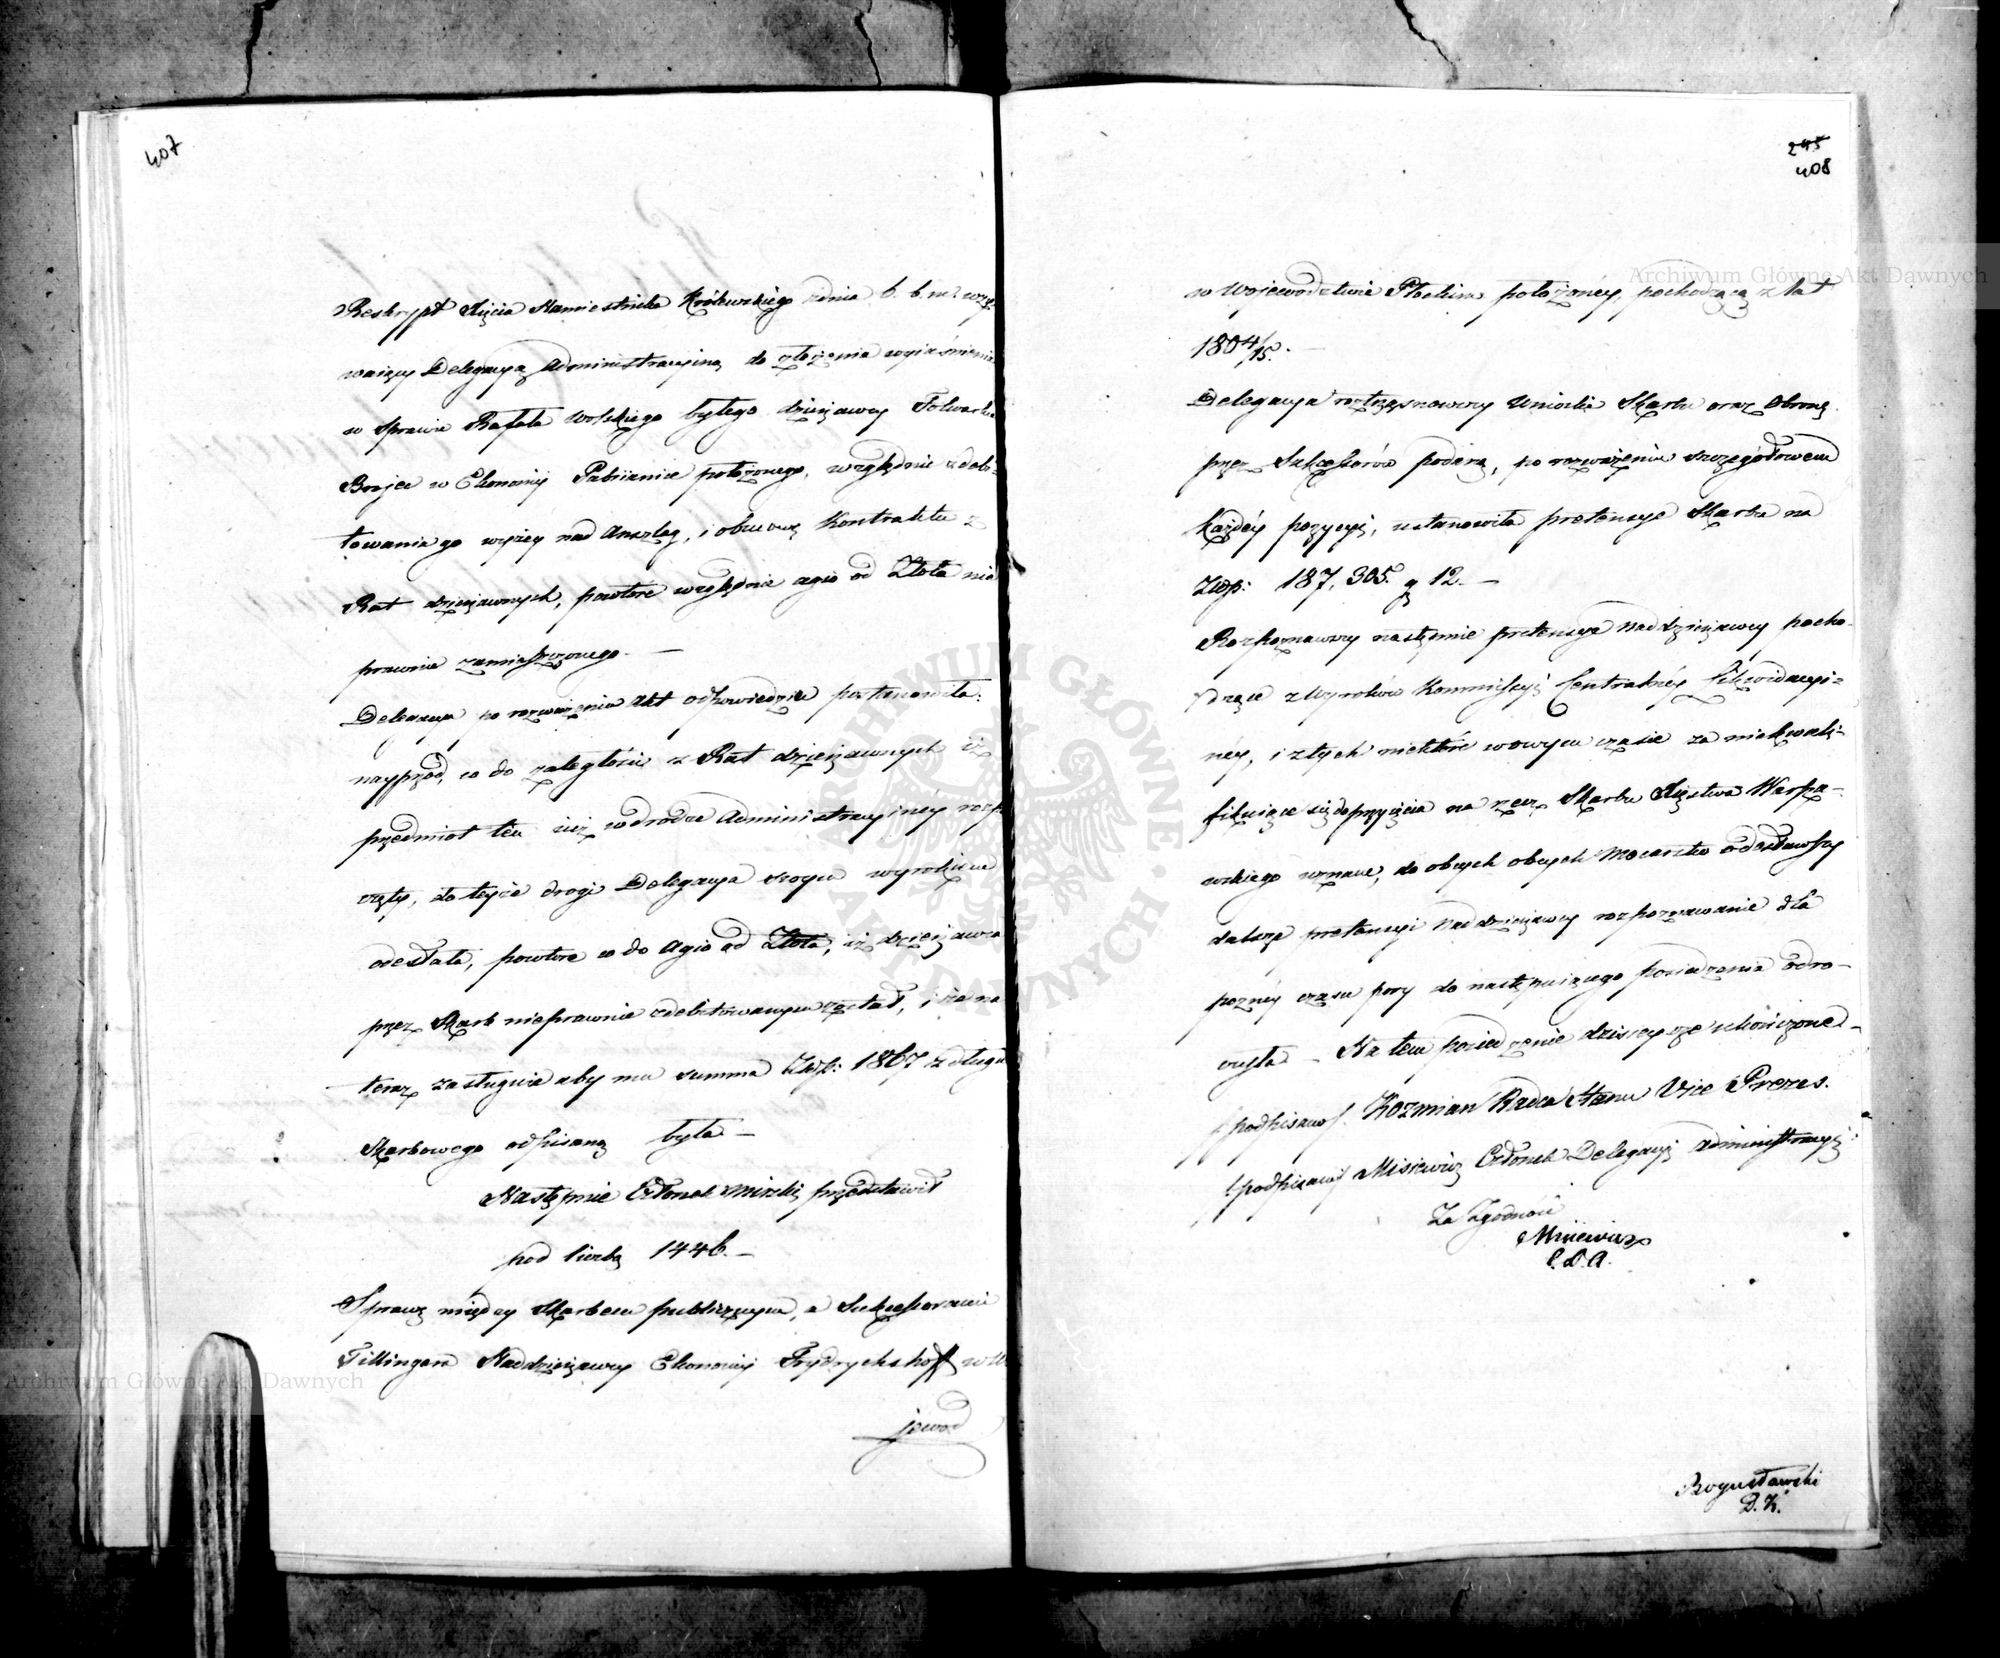 407
Reskrypt Xięcia Namiestnika Królewskiego z dnia 6. b. m. wzy-
waiący Delegacyą Administracyiną do złożenia wyiaśnienia
w sprawie Rafała Wolskiego byłego dzierżawcy Folwarku
w Ekonomij Pabianice położonego, względnie zdebi-
towania go wyżey nad i obrębu Kontraktu z
Rat dzierżawnych, powtóre względnie agio od Złota nie
prawnie zamieszczonego. —
Delegacya po rozważeniu Akt odpowiedzieć postanowiła:
nayprzód, co do zaległości z Rat dzierżawnych iż
przedmiot ten iuż w drodze Administracyinéy rozp
częty, do teyże drogi Delegacya swoym wyrokiem
odesłała, powtóre co do Agio od Złota, iż dzierżawca
przez Skarb nieprawnie zdebitowanym został, i że na
teraz zasługuie aby mu summa Złp: 1867 z długu
Skarbowego odpisaną była —
Następnie Członek Mirski przedstawił
pod liczbą 1446. —
Sprawę między Skarbem publicznym, a Sukcessorami
Tillingera Naddzierżawcy Ekonomij Frydrychshoff w Wo
jewod
245
408
w Województwie Płockim położonéy, pochodzącą z lat
1804/15. —
Delegacya roztrząsnąwszy Wnioski Skarbu oraz Obronę
przez Sukcessorów podaną, po rozważeniu szczegółowem
każdéy pozycyi, ustanowiła pretensye Skarbu na
Złp: 187,305. g 12. —
Rozpoznawszy następnie pretensye Naddzierżawcy pocho-
dzące z Wyroków Kommissyi Centralnéy Likwidacyi-
néy, i z tych niektóre w owym czasie za niekwali-
fikuiące się do przyięcia na rzecz Skarbu Xięstwa Warsza-
wskiego uznane, do obcych Mocarstw odesławszy
dalsze pretensyi Naddzierżawcy rozpoznawanie dla
poznéy czasu pory do następuiącego posiedzenia odro-
czyła — Na tem posiedzenie dzisieysze ukończone —
/podpisano/ Kozmian Radca Stanu Vice Prezes.
/podpisano/ Misiewicz Członek Delegacyi Administracyi:
Za Zgodność
Misiewicz
C. D. A.
Bogusławski
D. K.
Archiwum Główne Akt Dawnych